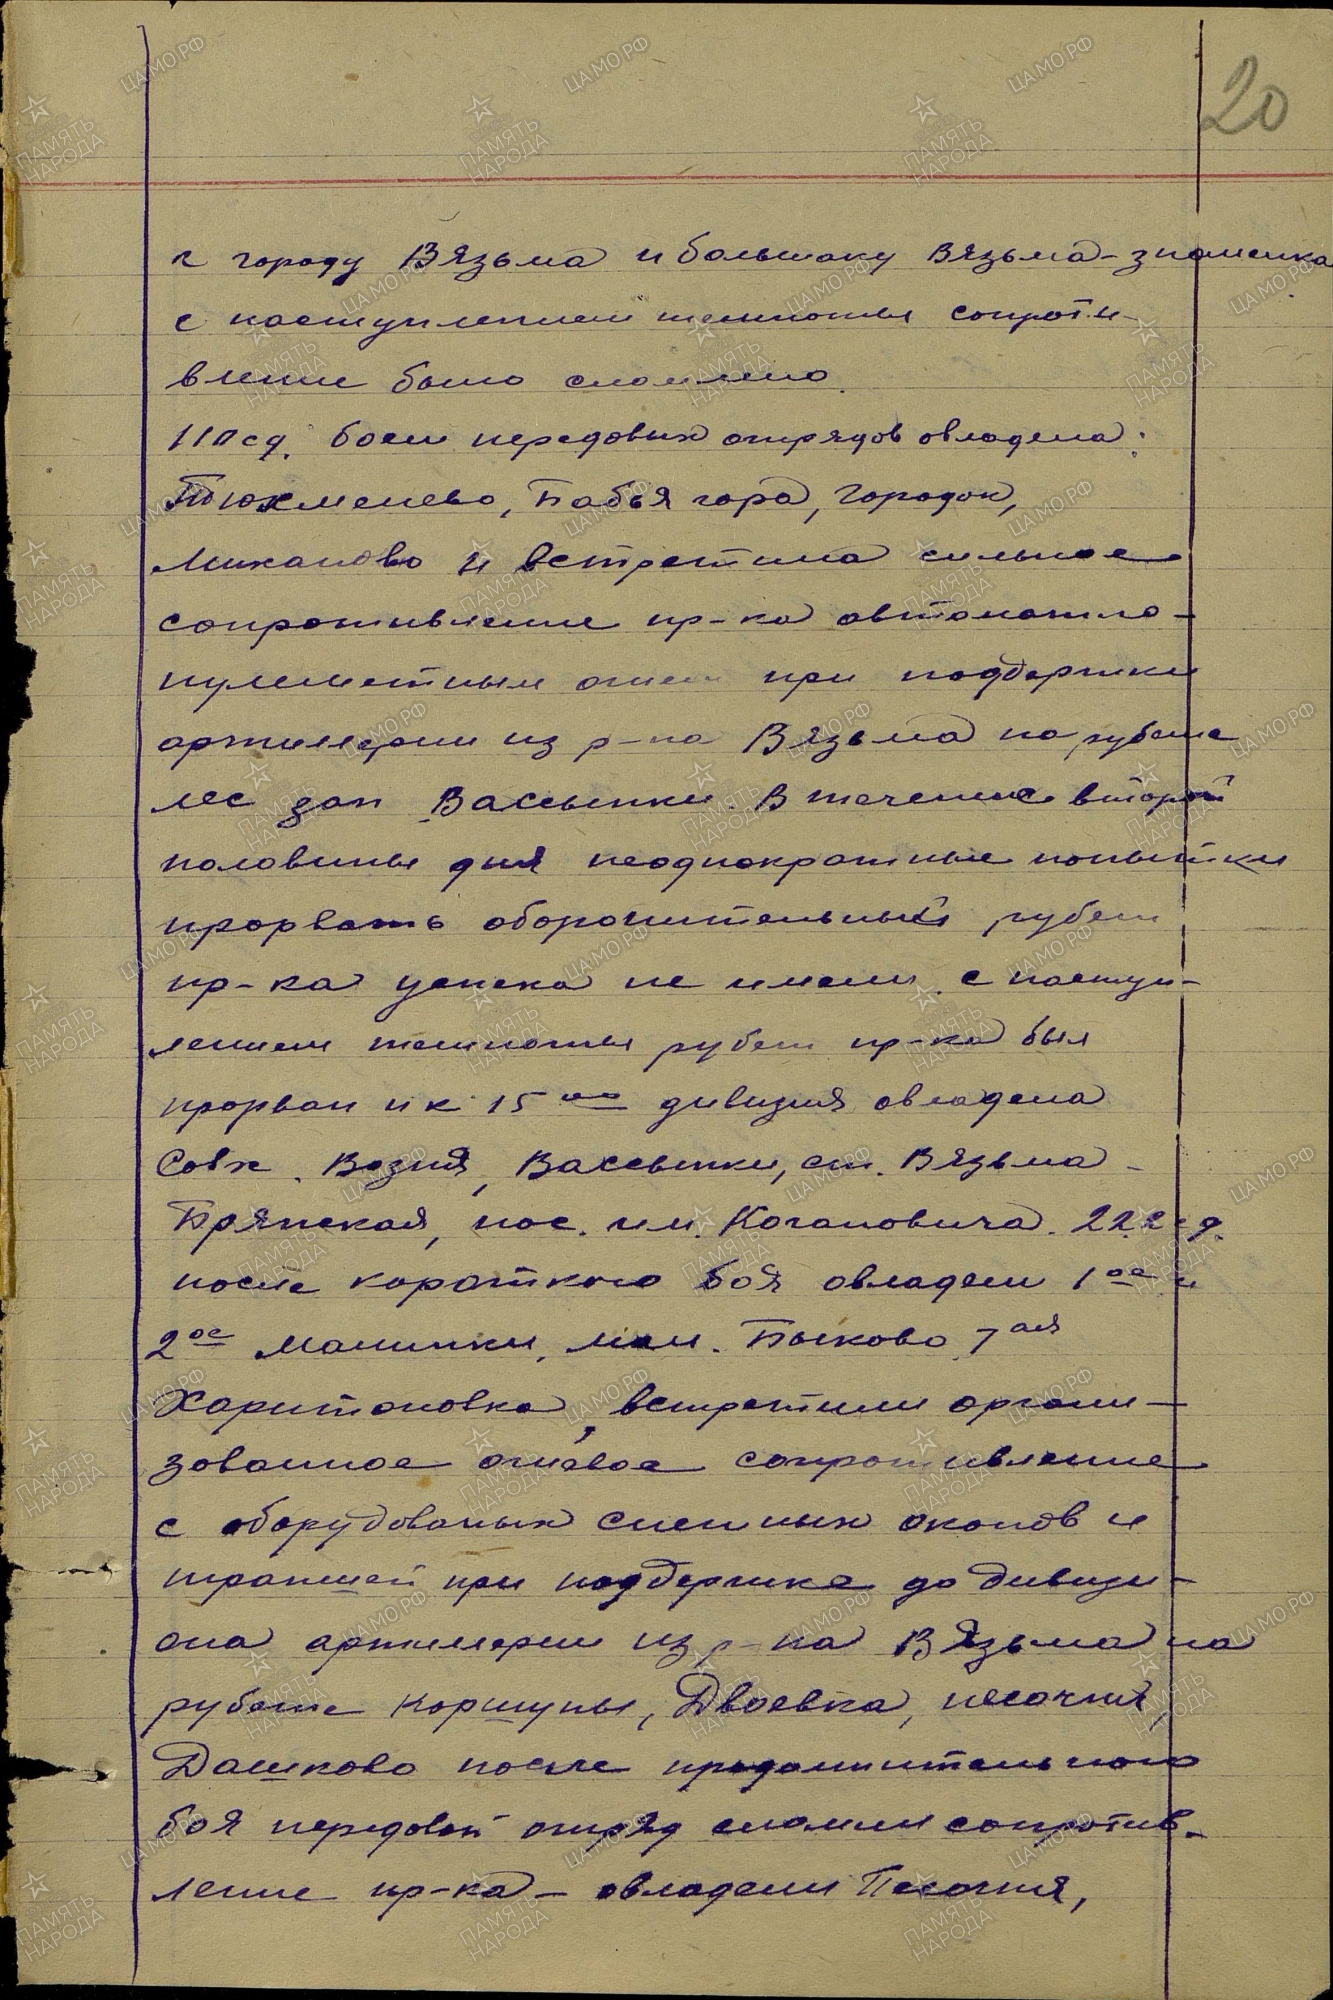 20
к городу Вязьма и большаку Вязьма-Знаменка
с наступлением темноты сопроти-
вление было сломлено.
110 сд. боем передовых отрядов овладела:
Тюхменево, Бабья гора, Городок,
Миханово и встретила сильное
сопротивление пр-ка автоматно-
пулеметным огнем при поддержки
артиллерии из р-на Вязьма на рубеже
лес зап Вассынки. В течение второй
половины дня неоднократные попытки
прорвать оборонительный рубеж
пр-ка успеха не имели. с наступ-
лением темноты рубеж пр-ка был
прорван и к 15 ⁰⁰ дивизия овладела
Совх. Возня, Вассынки, ст. Вязьма-
Брянская, пос. им. Кагановича. 222 сд.
после короткого боя овладели 1 ое и
2 ое Малинки, Быково, 7 ая
Харитоновка, встретили органи-
зованное огневое сопротивление
с оборудованых снежных окопов и
траншей при поддержке до дивизи-
она артиллерии из р-на Вязьма на
рубеже Коршуны, Двоевка, песочня,
Дашково после продолжительного
боя передовой отряд сломили сопротив-
ление пр-ка – овладели Песочня,
ПАМЯТЬ НАРОДА
ЦАМО.РФ